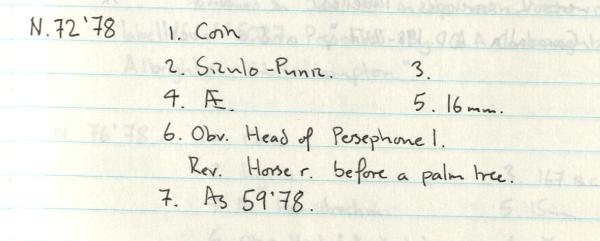 N.72'78 1. Coin
2. Siculo-Punic. 3.
4. Æ. 5. 16mm.
6. Obv. Head of Persephone l.
Rev. Horse r. before a palm tree.
7. As 59'78.